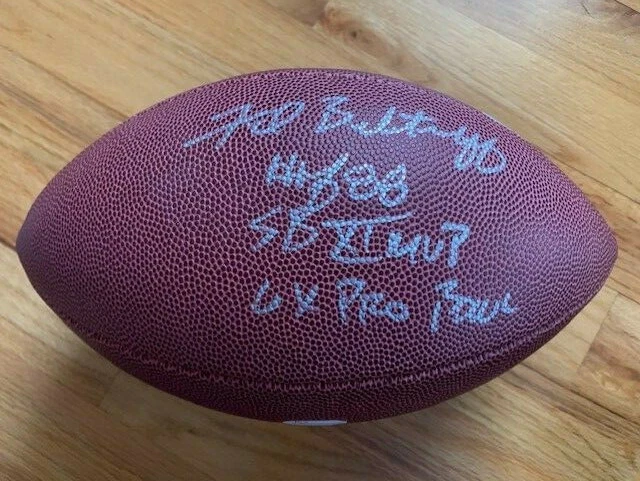 Fred Biletnikoff
HOF 88
SB XI MVP
6X PRO BOWL